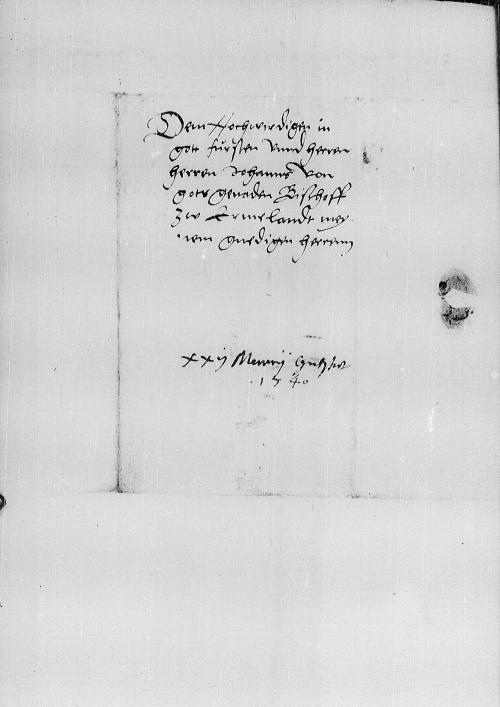 Dem Hochwirdigen in
gott fursten vnnd herren
herren Johannes von
gots genaden Bischoff
Zw Ermelandt mey
nem gnedigen herrenn
xxij
1540